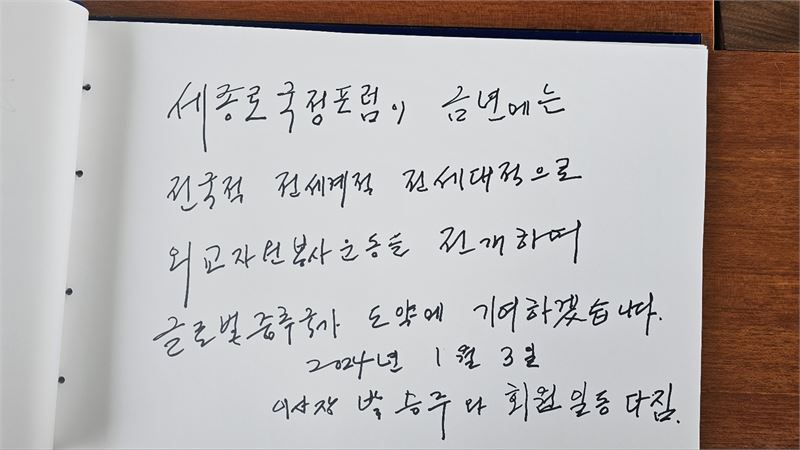 세종로국정포럼이 금년에는
전국적 전세계적 전세대적으로
외교자원봉사운동을 전개하며
글로벌중추국가 도약에 기여하겠습니다.
2024년 1월 3일
이사장 박승주와 회원일동 다짐.